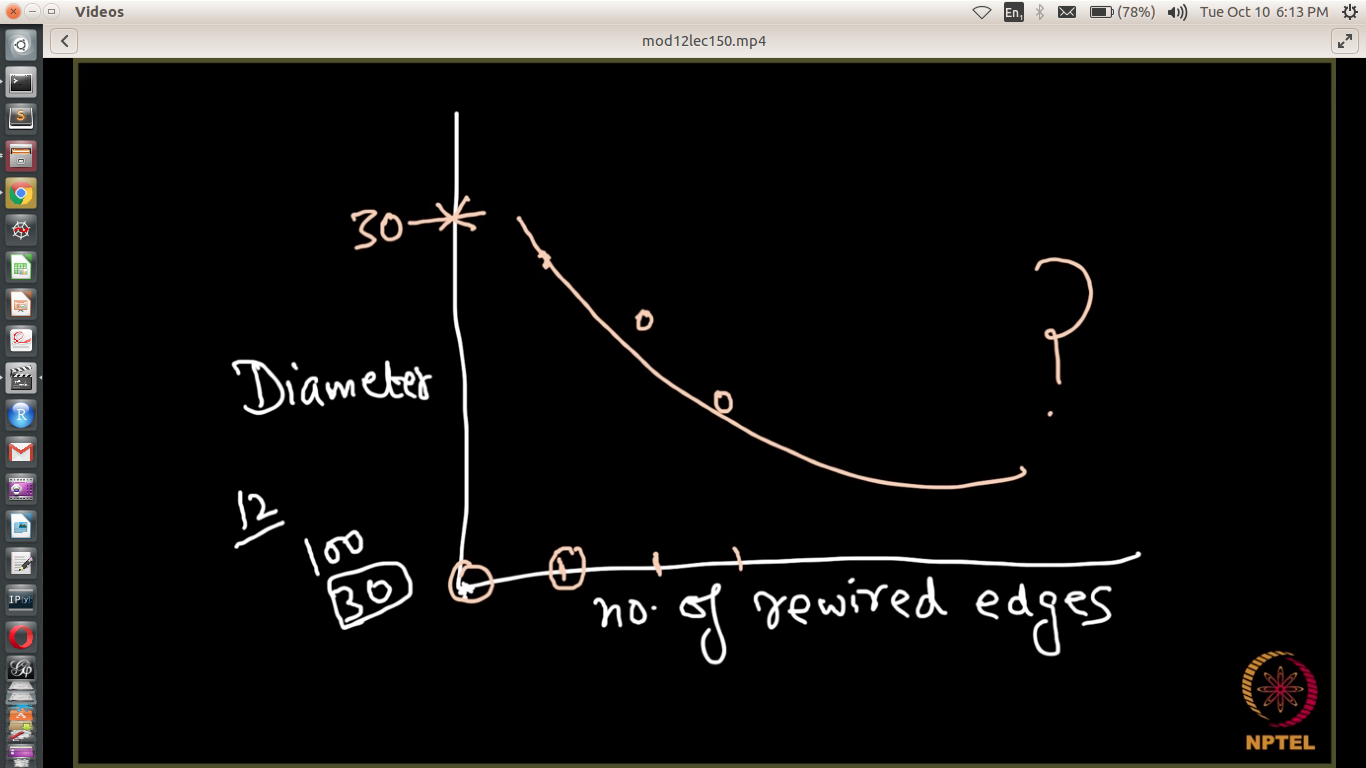 Videos
En1
(78%)
Tue Oct 10 6:13 PM
mod12lec150.mp4
30
?
Diameter
12
100
30
no. of rewired edges
NPTEL